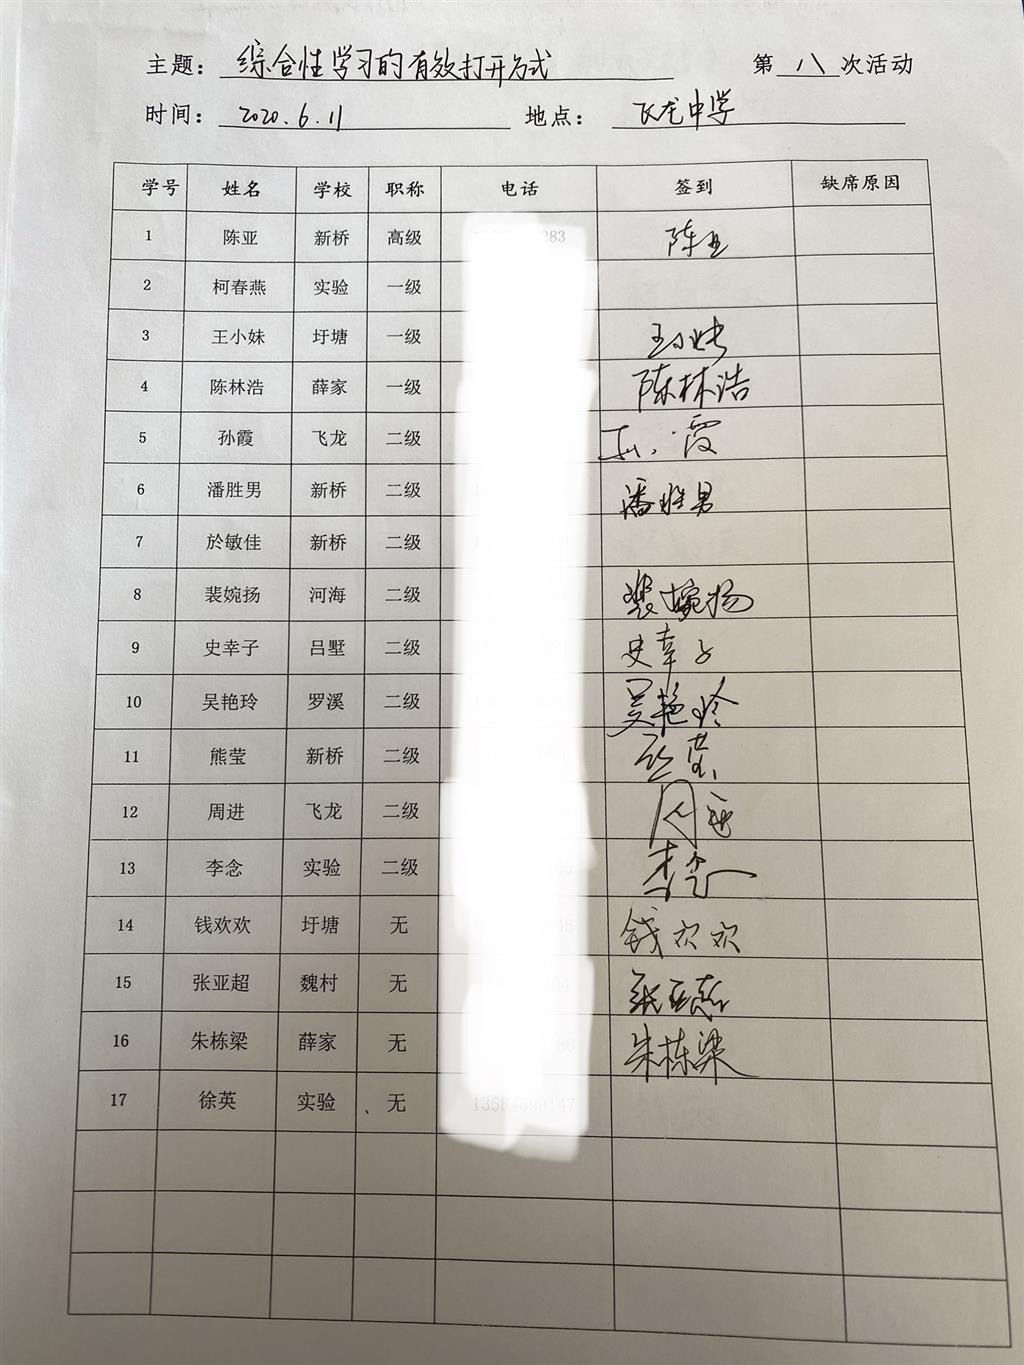 主题：综合性学习的有效打开方式 第八次活动
时间：2020.6.11 地点：飞龙中学
学号 姓名 学校 职称 电话 签到 缺席原因
1 陈亚 新桥 高级 283 陈亚
2 柯春燕 实验 一级
3 王小妹 圩塘 一级 王小妹
4 陈林浩 薛家 一级 陈林浩
5 孙霞 飞龙 二级 孙霞
6 潘胜男 新桥 二级 潘胜男
7 於敏佳 新桥 二级
8 裴婉扬 河海 二级 裴婉扬
9 史幸子 吕墅 二级 史幸子
10 吴艳玲 罗溪 二级 吴艳玲
11 熊莹 新桥 二级 熊莹
12 周进 飞龙 二级 周进
13 李念 实验 二级 李念
14 钱欢欢 圩塘 无 45 钱欢欢
15 张亚超 魏村 无 张亚超
16 朱栋梁 薛家 无 86 朱栋梁
17 徐英 实验 、无